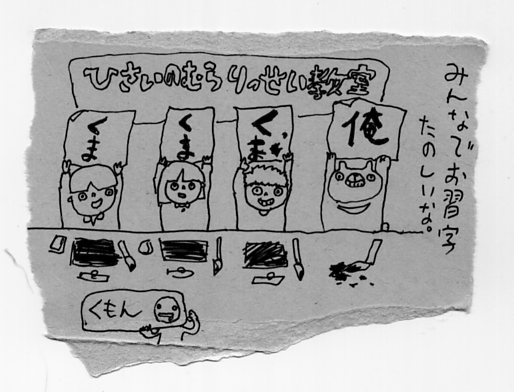 ひさいのむらりっせい教室
みんなでお習字
たのしいな。
くま
くま
くま
俺
くもん